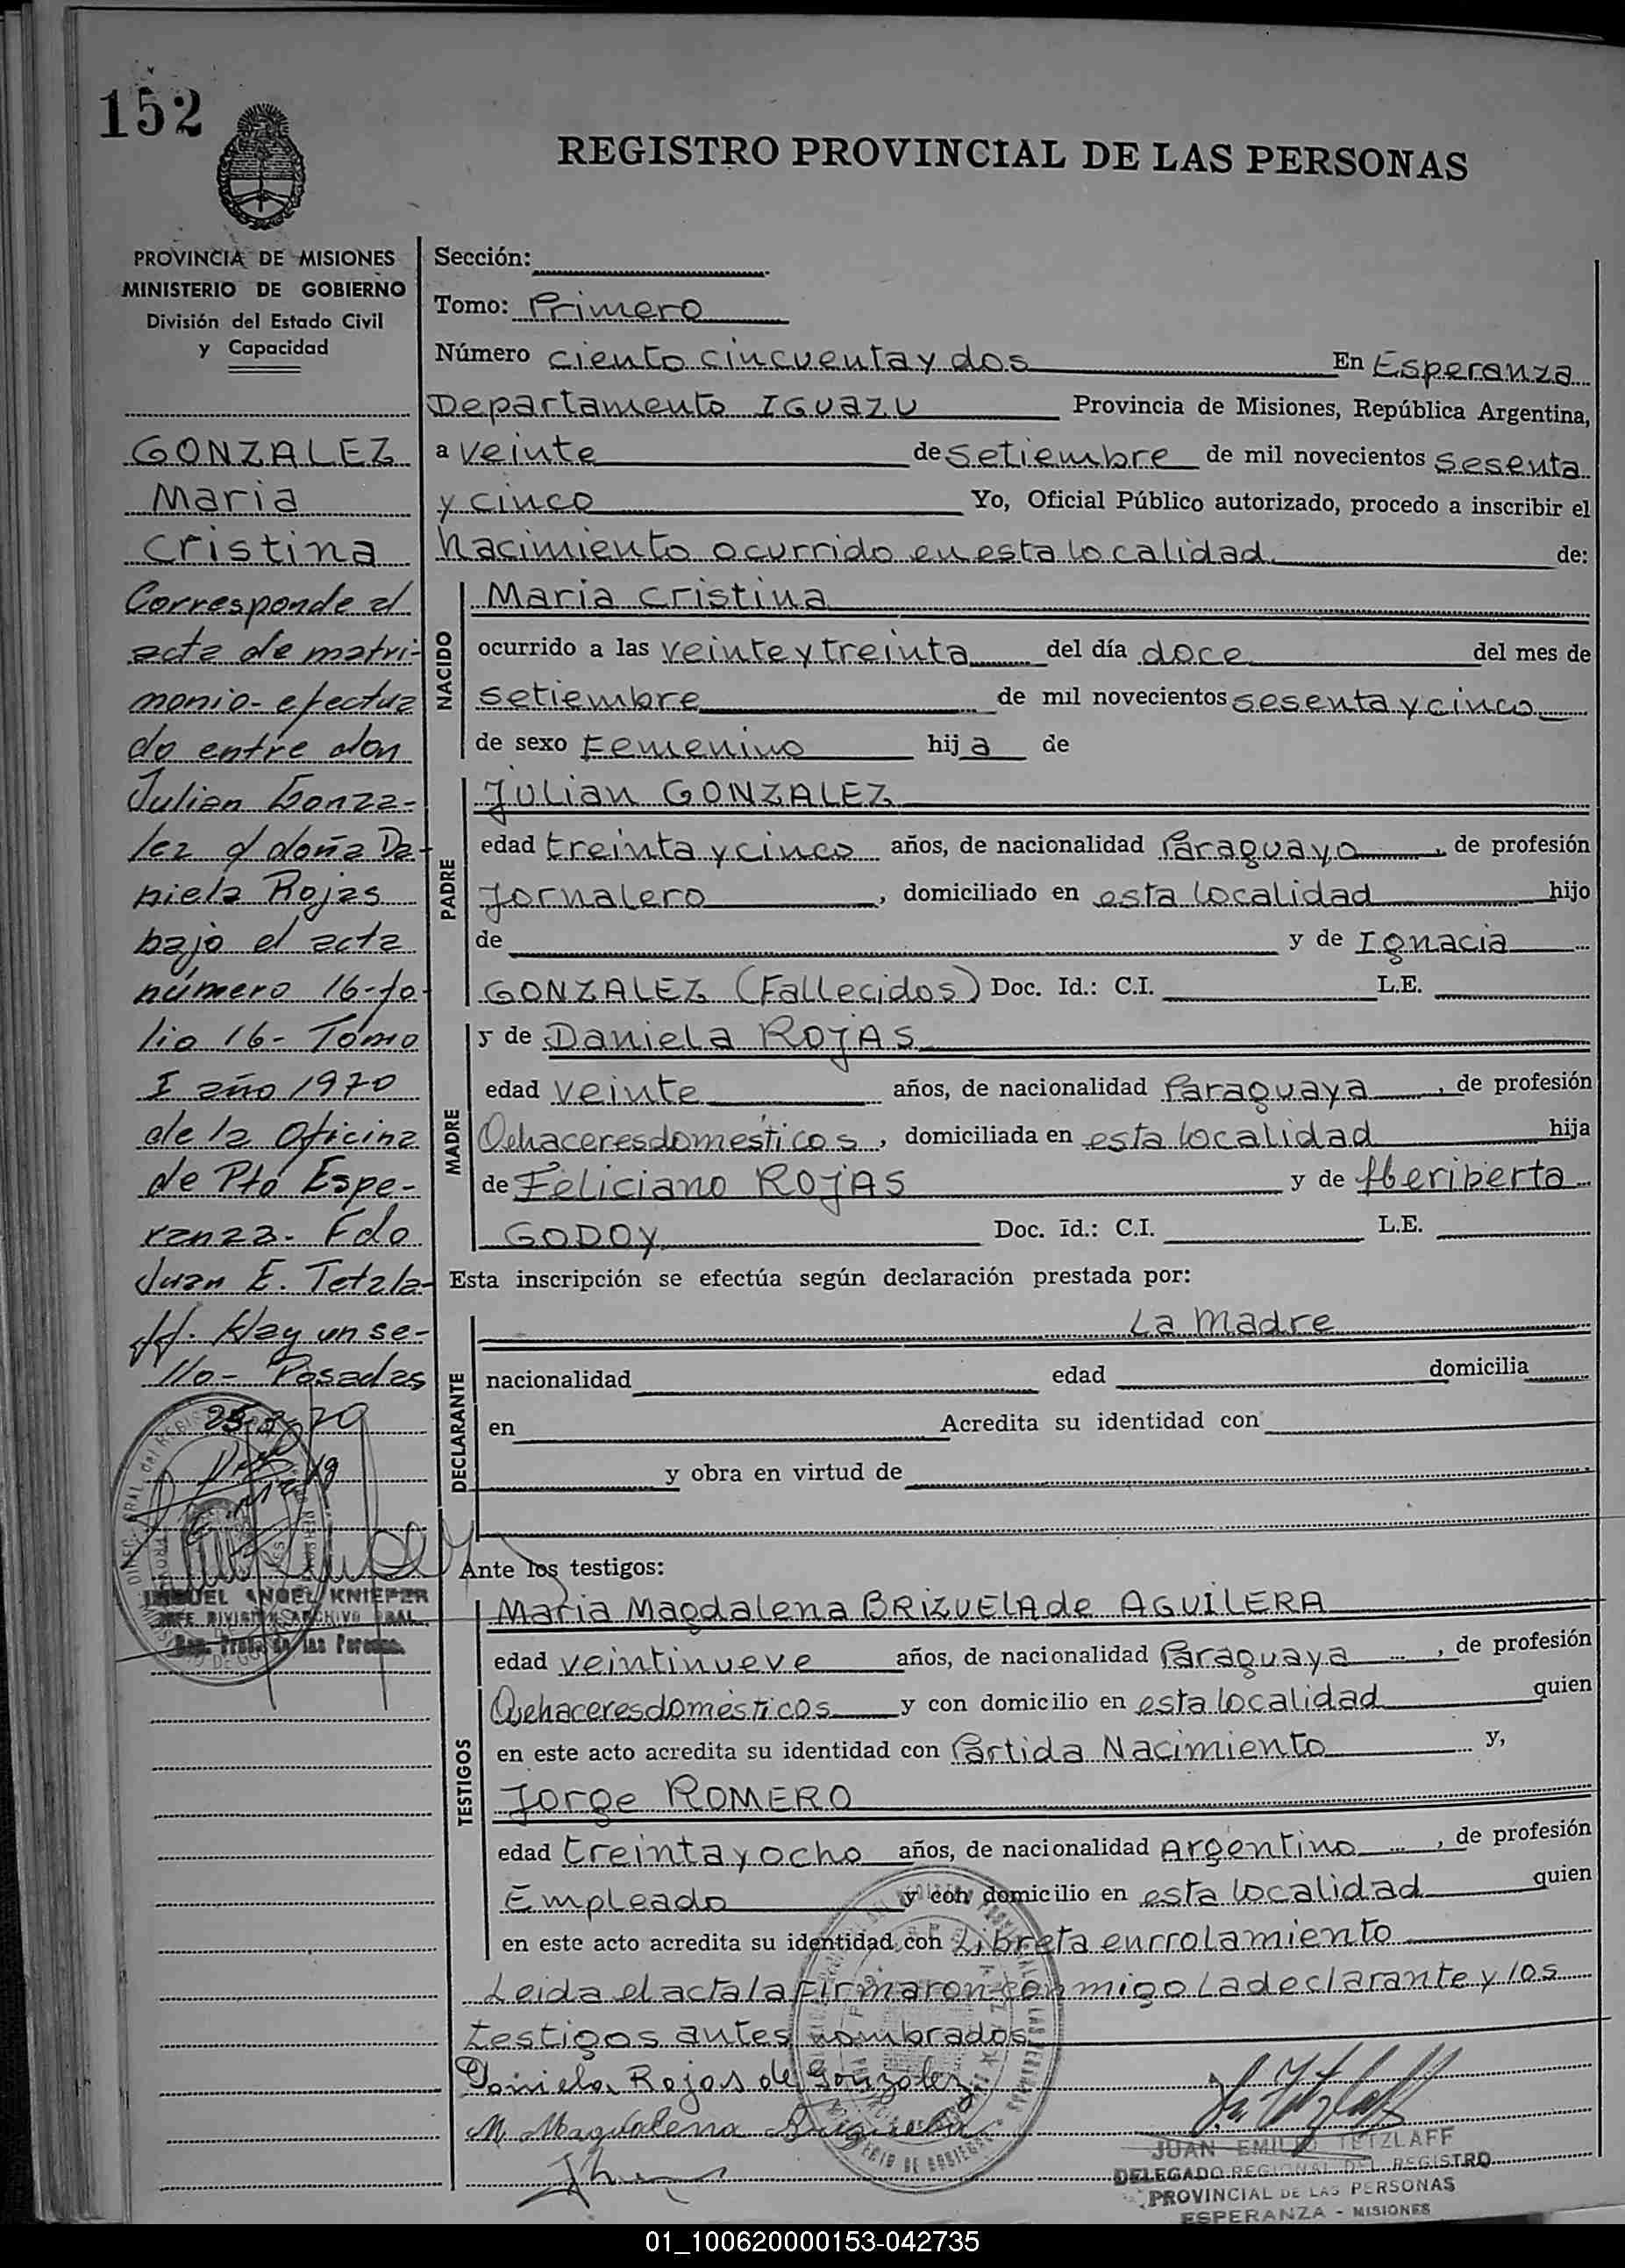 152
REGISTRO PROVINCIAL DE LAS PERSONAS
PROVINCIA DE MISIONES
MINISTERIO DE GOBIERNO
División del Estado Civil
y Capacidad
GONZALEZ
Maria
Cristina
Corresponde al
acta de matri-
monio- efectua
do entre don
Julian Gonza-
lez y doña Da-
niela Rojas
bajo el acta
número 16-fo-
lio 16- Tomo
I año 1970
de la Oficina
de Pto Espe-
ranza- Fdo
Juan E. Tetzla-
ff. Hay un se-
llo- Posadas
MIGUEL ANGEL KNIEPER
JEFE DIVISION ARCHIVO GRAL.
Sección:
Tomo: Primero
Número ciento cincuenta y dos En Esperanza
Departamento IGUAZU Provincia de Misiones, República Argentina,
a veinte de setiembre de mil novecientos sesenta
y cinco Yo, Oficial Público autorizado, procedo a inscribir el
nacimiento ocurrido en esta localidad de:
NACIDO
Maria Cristina
ocurrido a las veinte y treinta del día doce del mes de
setiembre de mil novecientos sesenta y cinco
de sexo Femenino hij a de
PADRE
Julian GONZALEZ
edad treinta y cinco años, de nacionalidad Paraguayo, de profesión
Jornalero, domiciliado en esta localidad hijo
de y de Ignacia
GONZALEZ (Fallecidos) Doc. Id.: C.I. L.E.
MADRE
y de Daniela ROJAS
edad veinte años, de nacionalidad Paraguaya, de profesión
Qehaceres domésticos, domiciliada en esta localidad hija
de Feliciano ROJAS y de Heriberta
GODOY Doc. Id.: C.I. L.E.
Esta inscripción se efectúa según declaración prestada por:
DECLARANTE
La madre
nacionalidad edad domicilia
en Acredita su identidad con
y obra en virtud de
Ante los testigos:
TESTIGOS
Maria Magdalena BRIZUELA de AGUILERA
edad veintinueve años, de nacionalidad Paraguaya, de profesión
Quehaceres domésticos y con domicilio en esta localidad quien
en este acto acredita su identidad con Partida Nacimiento y,
Jorge ROMERO
edad treinta y ocho años, de nacionalidad Argentino, de profesión
Empleado y con domicilio en esta localidad quien
en este acto acredita su identidad con Libreta enrrolamiento
Leida el acta la firmaron conmigo la declarante y los
testigos antes nombrados.
Daniela Rojas de González
M. Magdalena
JUAN EMILIO TETZLAFF
DELEGADO REGIONAL DEL REGISTRO
PROVINCIAL DE LAS PERSONAS
ESPERANZA - MISIONES
01_100620000153-042735